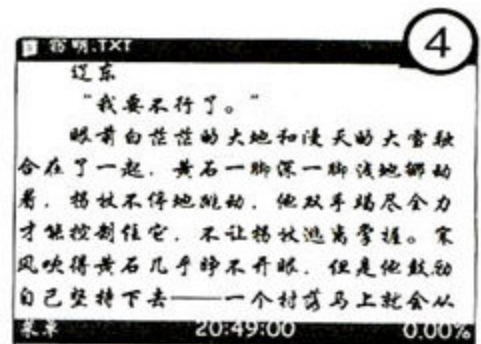 4
窃明.TXT
辽东
“我要不行了。”
眼前白茫茫的大地和漫天的大雪融
合在了一起。黄石一脚深一脚浅地挪动
着，拐杖不停地跳动，他双手竭尽全力
才能控制住它，不让拐杖逃离掌握。寒
风吹得黄石几乎睁不开眼，但是他鼓励
自己坚持下去——一个村落马上就会从
菜单 20:49:00 0.00%